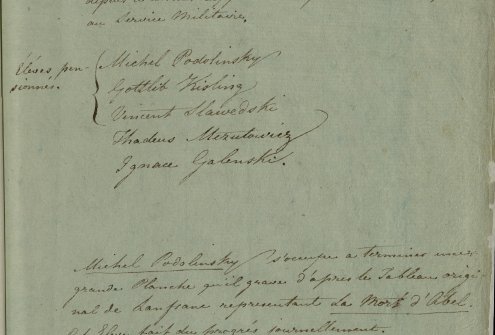 au Service Militaire.
Elèves pen-
sionnés.
Michel Podolinsky
Gottlib Kisling
Vincent Slawedski
Thadeus Mrzutowicz
Ignace Galenski.
Michel Podolinsky s'occupe a terminer une
grande Planche qu'il grave d'apres le Tableau origi
nal de Lanfranc representant la Mort d'Abel.
fait du progrés journellement.